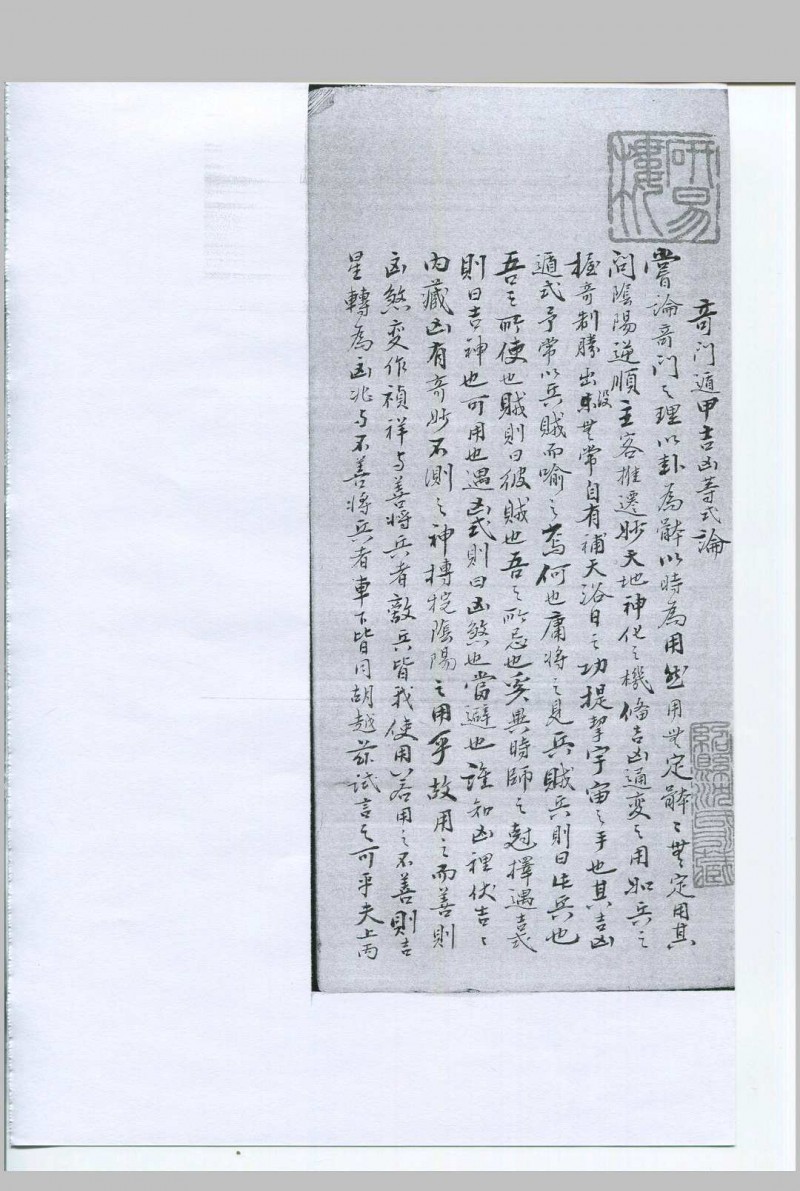 奇门遁甲吉凶等式論
嘗論奇门之理以卦為體以時為用然用無定體〻無定用其
问陰陽逆順主客推遷妙天地神化之機俻吉凶通变之用如兵之
握奇制勝出没無常自有補天浴日之功提挈宇宙之手也其吉凶
遁式予常以兵賊而喻之焉何也庸将之見兵賊兵則曰此兵也
吾之所使也賊則曰彼賊也吾之所忌也奚異時師之尅擇遇吉式
則曰吉神也可用也遇凶式則曰凶煞也當避也誰知凶裡伏吉〻
内藏凶有奇妙不測之神摶捖陰陽之用乎故用之而善則
凶煞变作禎祥与善将兵者敵兵皆我使用若用之不善則吉
星轉為凶兆与不善将兵者車下皆同胡越茲試言之可乎夫上丙
研易樓